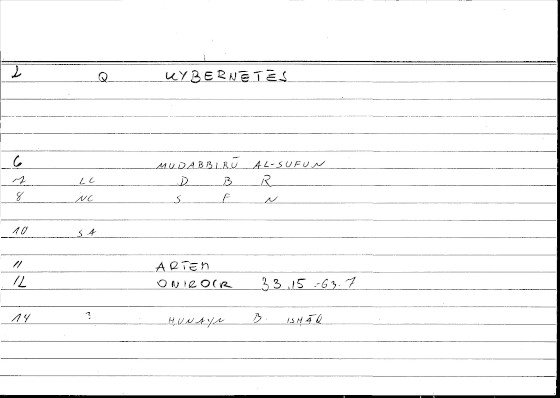 2 Q KYBERNETES
6 MUDABBIRŪ AL-SUFUN
7 LC D B R
8 NC S F N
10 SA
11 ARTEM
12 ONIROCR 33.15 -63.7
14 ? HUNAYN B. ISHĀQ